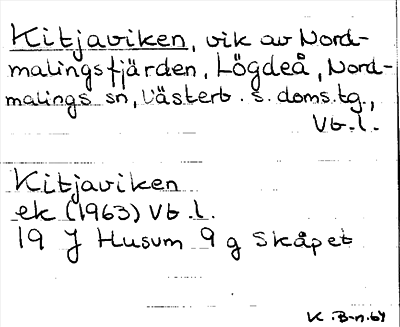 Kitjaviken, vik av Nord-
malingsfjärden, Lögdeå, Nord-
malings sn, Västerb. s. doms.tg.,
Vb.l.
Kitjaviken
ek (1963) Vb.l.
19 J Husum 9 g Skåpet
K.B-n.64